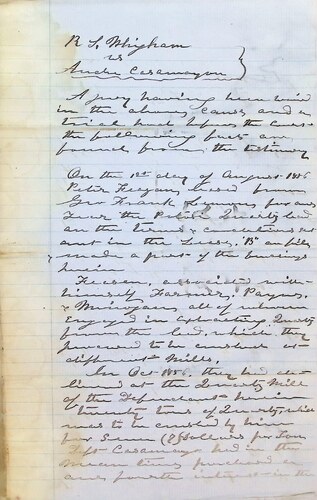 R S Whigham
vs
Andre Casamayou
A jury having been waived
in the above cause and a
trial had before the court
the following facts are
found from the testimony
On the 1st day of August 1856
Peter Keegan leased from
Geo Frank Lemons for one
year the Quartz led
on the terms & conditions set
out in the Lease, "B" on file
& made a part of the
herein
associated with
himself Farmer, Payne,
& all of whom
engaged in extracting Quartz
from the led, which they
procured to be crushed at
different Mills.
In Oct 1856, they had de-
livered at the Quartz Mill
of the Defendant herein
twenty tons of Quartz, which
was to be crushed by him
for Seven (7) dollars per Ton
Casamayou had in the
mean time purchased
one fourth interest in the